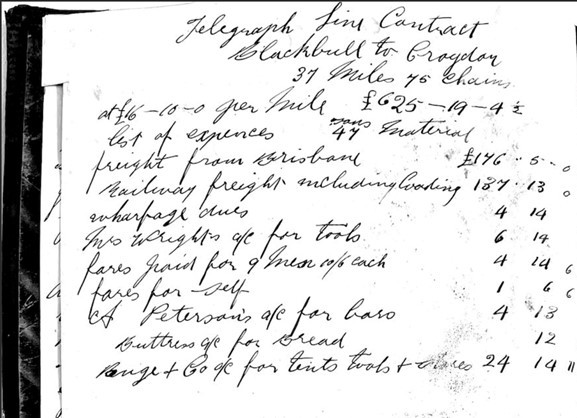 Telegraph Line Contract
Blackbull to Croydon
37 Miles 75 Chains
at £16-10-0 per Mile £625-19-4½
list of expences 47 tons Material
freight from Brisbane £176 .. 5 .. 0
Railway freight including loading 137 .. 13 0
wharfage dues 4 14
Mrs Wrights a/c for tools 6 14
fares paid for 9 Men 10/6 each 4 14 6
fares for self 1 6 6
Petersons a/c for bars 4 13
Buttress a/c for Bread 12
& Co a/c for tents tools + stores 24 14 11